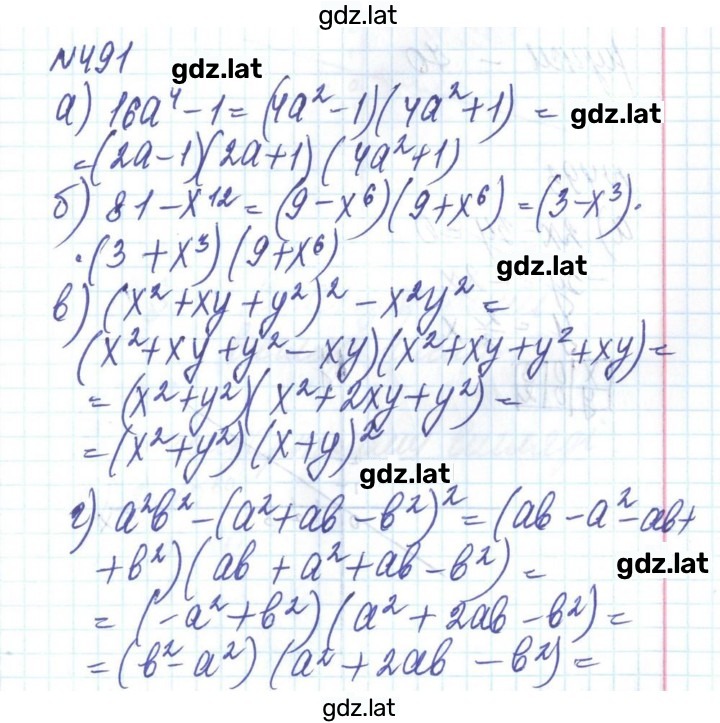 gdz.lat
№491
gdz.lat
а) 16a⁴ - 1 = (4a² - 1)(4a² + 1) =
gdz.lat
= (2a - 1)(2a + 1)(4a² + 1)
б) 81 - x¹² = (9 - x⁶)(9 + x⁶) = (3 - x³)·
·(3 + x³)(9 + x⁶)
gdz.lat
в) (x² + xy + y²)² - x²y² =
(x² + xy + y² - xy)(x² + xy + y² + xy) =
= (x² + y²)(x² + 2xy + y²) =
= (x² + y²)(x + y)²
gdz.lat
г) a²b² - (a² + ab - b²)² = (ab - a² - ab +
+ b²)(ab + a² + ab - b²) =
gdz.lat
= (-a² + b²)(a² + 2ab - b²) =
= (b² - a²)(a² + 2ab - b²) =
gdz.lat